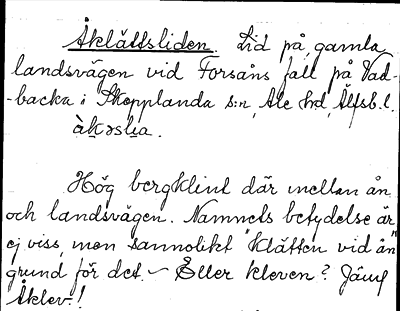 Åklättsliden. Lid på gamla
landsvägen vid Forsåns fall på Vad-
-backa i Skepplanda s:n, Ale hd, Älfsb. l.
àk̲əsli̲a.
Hög bergklint där mellan ån
och landsvägen. Namnets betydelse är
ej viss, men sannolikt "Klätten vid ån"
grund för det. – Eller kleven? Jämf
Åklev-!